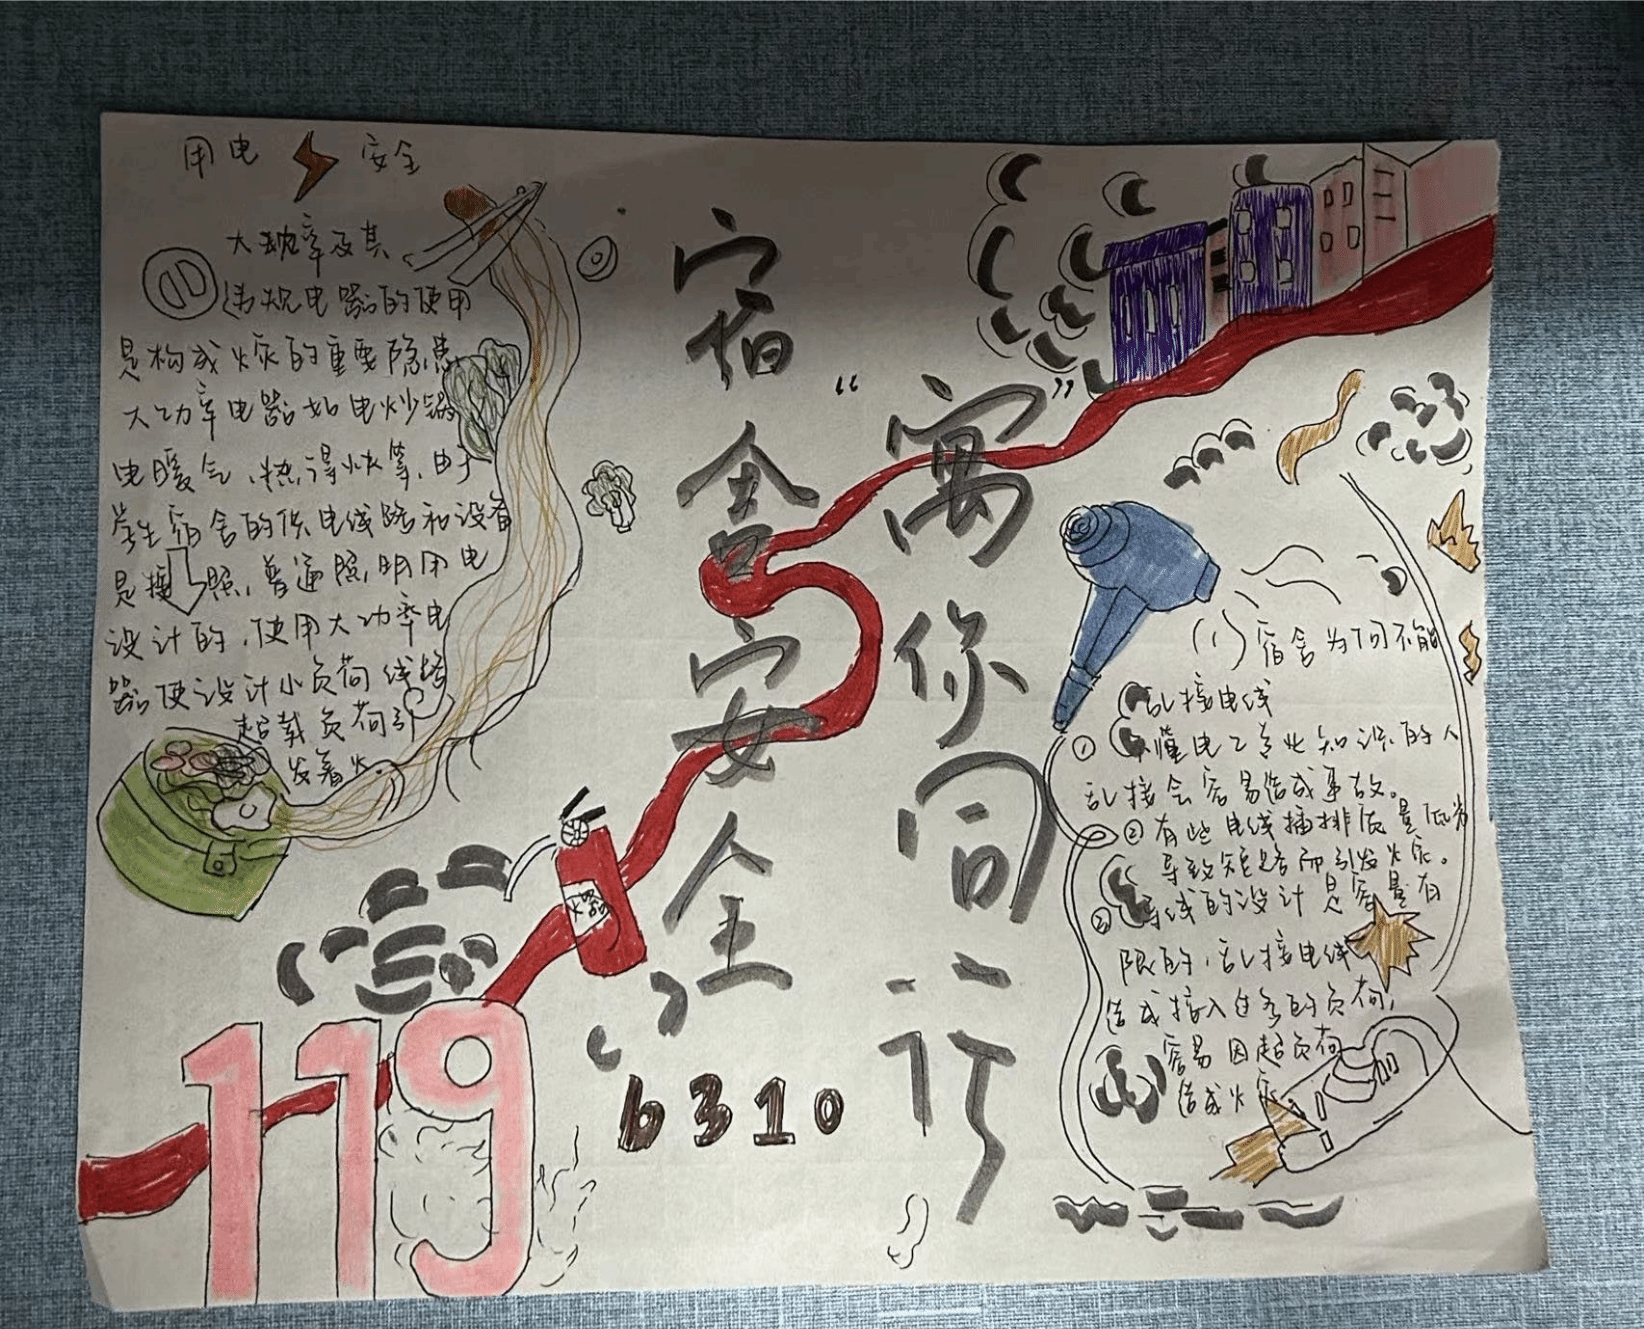 用电 安全
大功率及其
违规电器的使用
是构成火灾的重要隐患
大功率电器如电炒锅
电暖气、热得快等,由于
学生宿舍的供电线路和设备
是按照,普通照明用电
设计的,使用大功率电
器使设计小负荷线路
超载负荷引
发着火
宿舍安全
“寓”你同行
119
灭火器
6310
(1)宿舍为何不能
乱接电线
① 不懂电工专业知识的人
乱接会容易造成事故。
②有些电线插排质量低劣
导致短路而引发火灾。
③ 导线的设计是容量有
限的,乱接电线
造成接入过多的负荷,
容易因超负荷
造成火灾